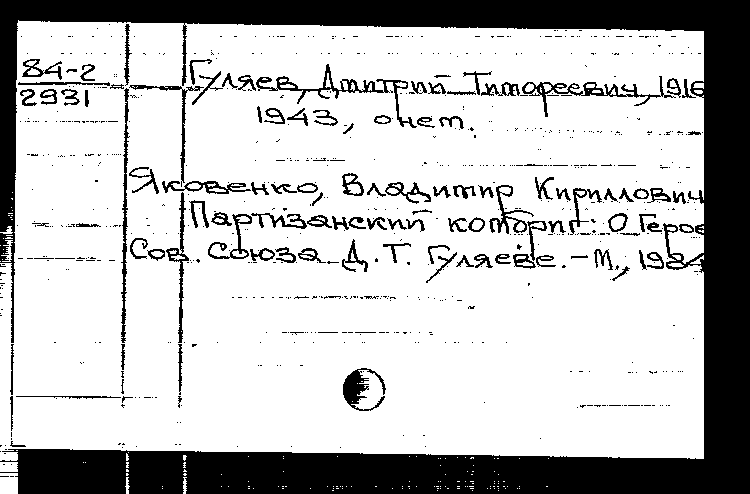 84-2
2931
Гуляев, Дмитрий Тимофеевич, 1916
1943, о нем.
Яковенко, Владимир Кириллович
Партизанский комбриг: О Герое
Сов. Союза Д.Т. Гуляеве. – М., 1984